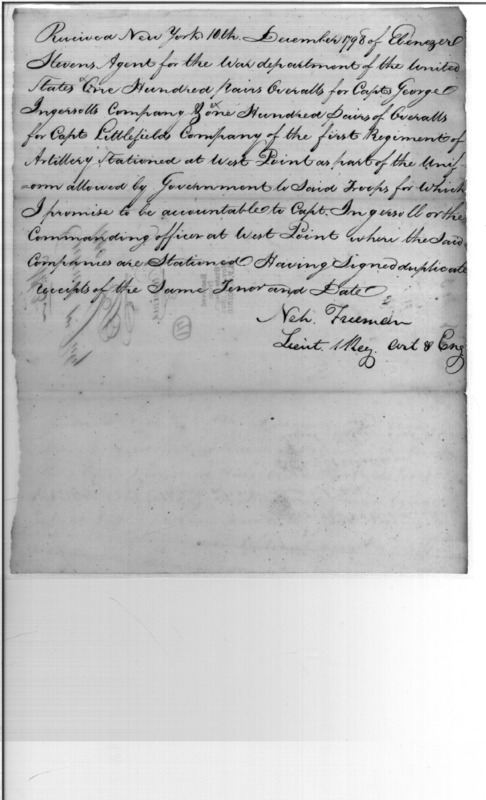 Received New York 10th. December 1798 of Ebenezer
Stevens Agent for the War department of the United
States One Hundred Pairs Overalls for Capt. George
Ingersolls Company & One Hundred Pairs of Overalls
for Capt Littlefields Company of the first Regiment of
Artillery Stationed at West Point as part of the Unif
-orm allowed by Government to Said Troops for Which
I promise to be accountable to Capt. Ingersoll or the
Commanding officer at West Point where the Said
Companies are Stationed Having Signed duplicate
receipts of the Same Tenor and Date
Neh. Freeman
Lieut. 1 Reg. Art & Eng